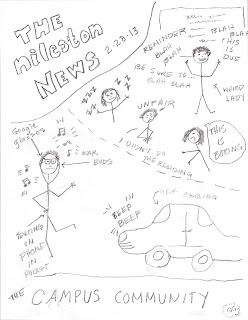 THE
milestON
NEWS
2-28-13
REMINDER
BLAH
BLAH
BLAH
BLAH
BLAH
THIS
IS
DUE
BE SURE TO...
BLAH BLAH
WEIRD
LADY
ZZZ
ZZZ
UNFAIR
I DIDN'T DO
THE READING
THIS
IS
BORING
Google
glasses
EAR
BUDS
TEXTING
ON
PHONE
IN
POCKET
BEEP
BEEP
THE CAMPUS COMMUNITY